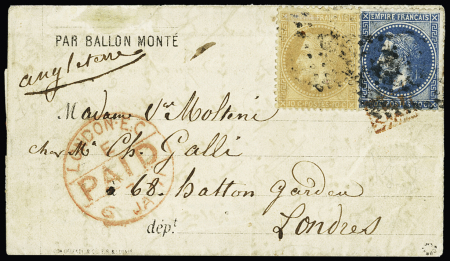 PAR BALLON MONTÉ
EMPIRE FRANÇAIS
angleterre
Madame Vve Molteni
chez Mr Ch. Galli
LONDON·E.C
PAID
JA
à 68. hatton garden
dépt.
Londres